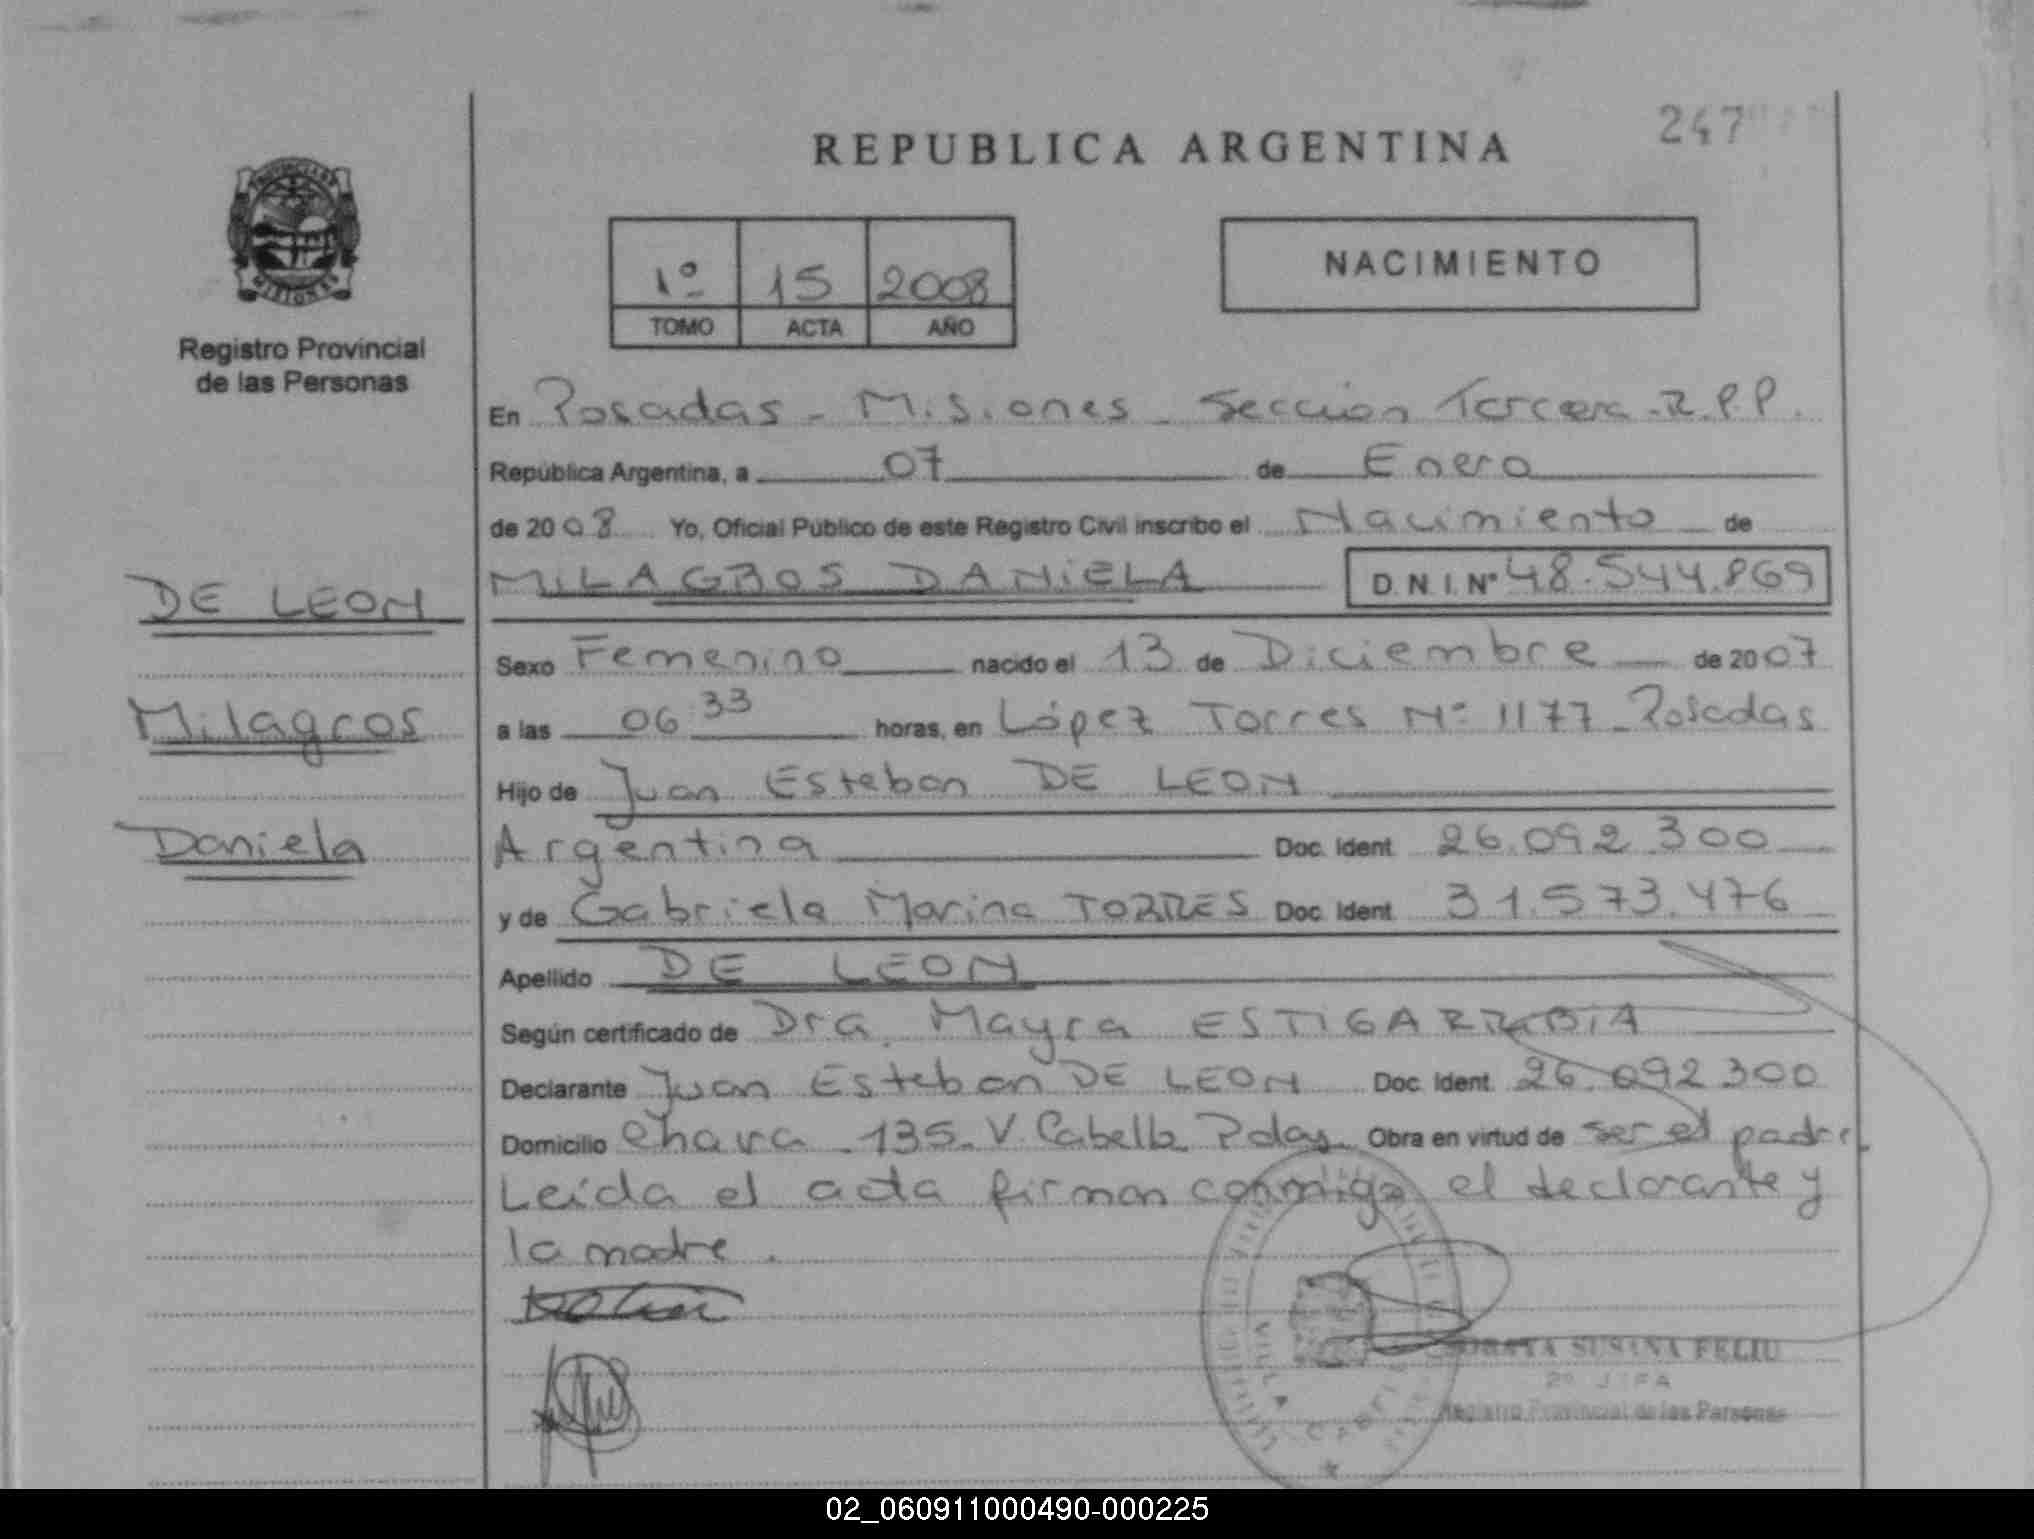 REPUBLICA ARGENTINA
247
PROVINCIA DE
MISIONES
Registro Provincial
de las Personas
1º 15 2008
TOMO ACTA AÑO
NACIMIENTO
En Posadas - Misiones - Sección Tercera - R.P.P.
República Argentina, a 07 de Enero
de 2008 Yo, Oficial Público de este Registro Civil inscribo el Nacimiento de
DE LEON
Milagros
Daniela
MILAGROS DANIELA D.N.I. Nº 48.544.869
Sexo Femenino nacido el 13 de Diciembre de 2007
a las 06:33 horas, en López Torres Nº 1177 - Posadas
Hijo de Juan Esteban DE LEON
Argentina Doc. Ident. 26.092.300
y de Gabriela Marina TORRES Doc. Ident. 31.573.476
Apellido DE LEON
Según certificado de Dra. Mayra ESTIGARRIBIA
Declarante Juan Esteban DE LEON Doc. Ident. 26.092.300
Domicilio Chava - 135 - V. Cabello Pdas. Obra en virtud de ser el padre
Leída el acta firman conmigo el declarante y
la madre.
SUSANA FELIU
2º JEFA
Registro Provincial de las Personas
VILLA
02_060911000490-000225